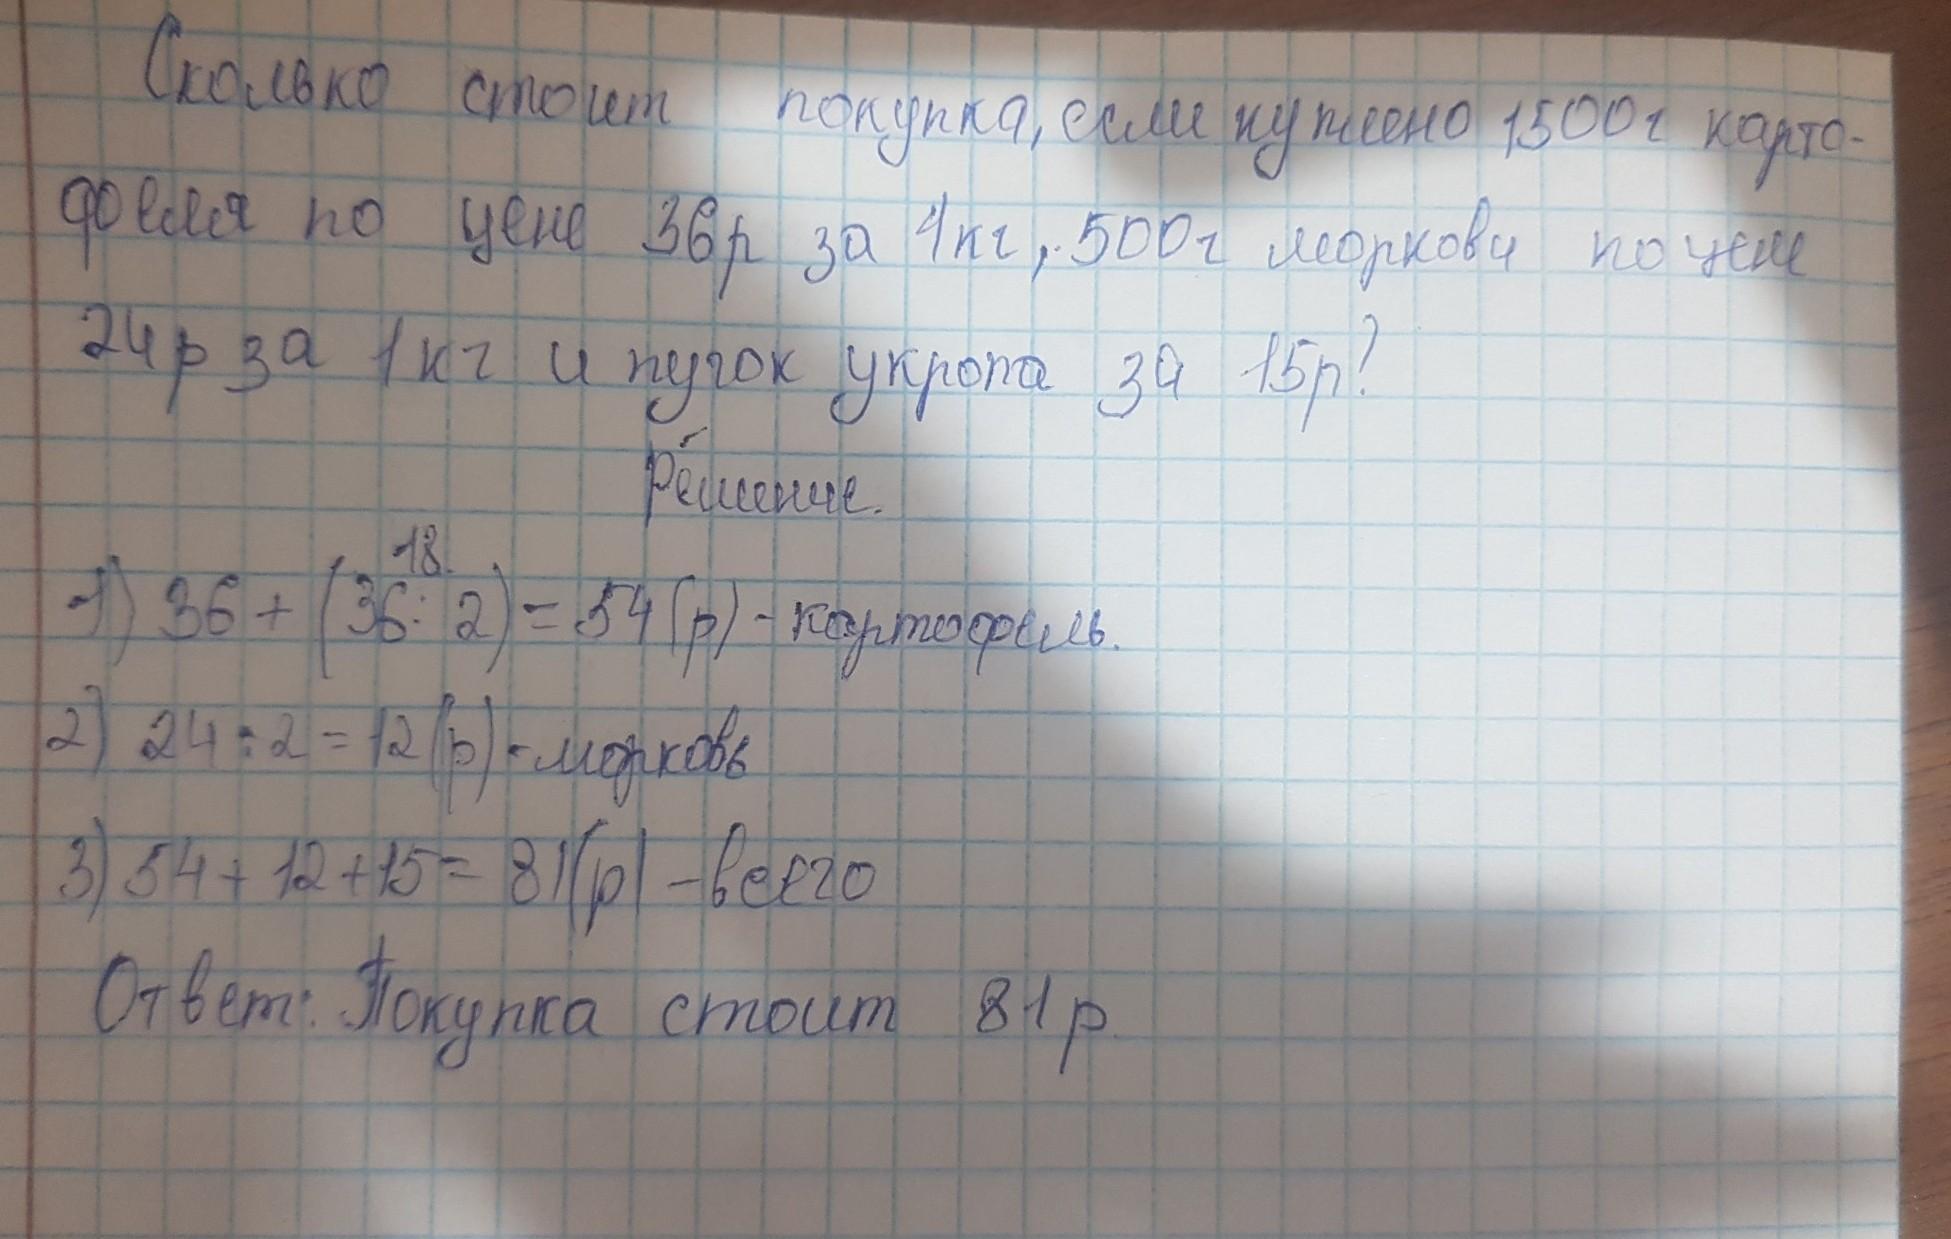 Сколько стоит покупка, если куплено 1500г карто-
феля по цене 36р за 1кг, 500г моркови по цене
24р за 1кг и пучок укропа за 15р?
Решение.
18.
1) 36 + (36 : 2) = 54 (р) - картофель.
2) 24 : 2 = 12 (р) - морковь
3) 54 + 12 + 15 = 81 (р) - всего
Ответ: Покупка стоит 81р.